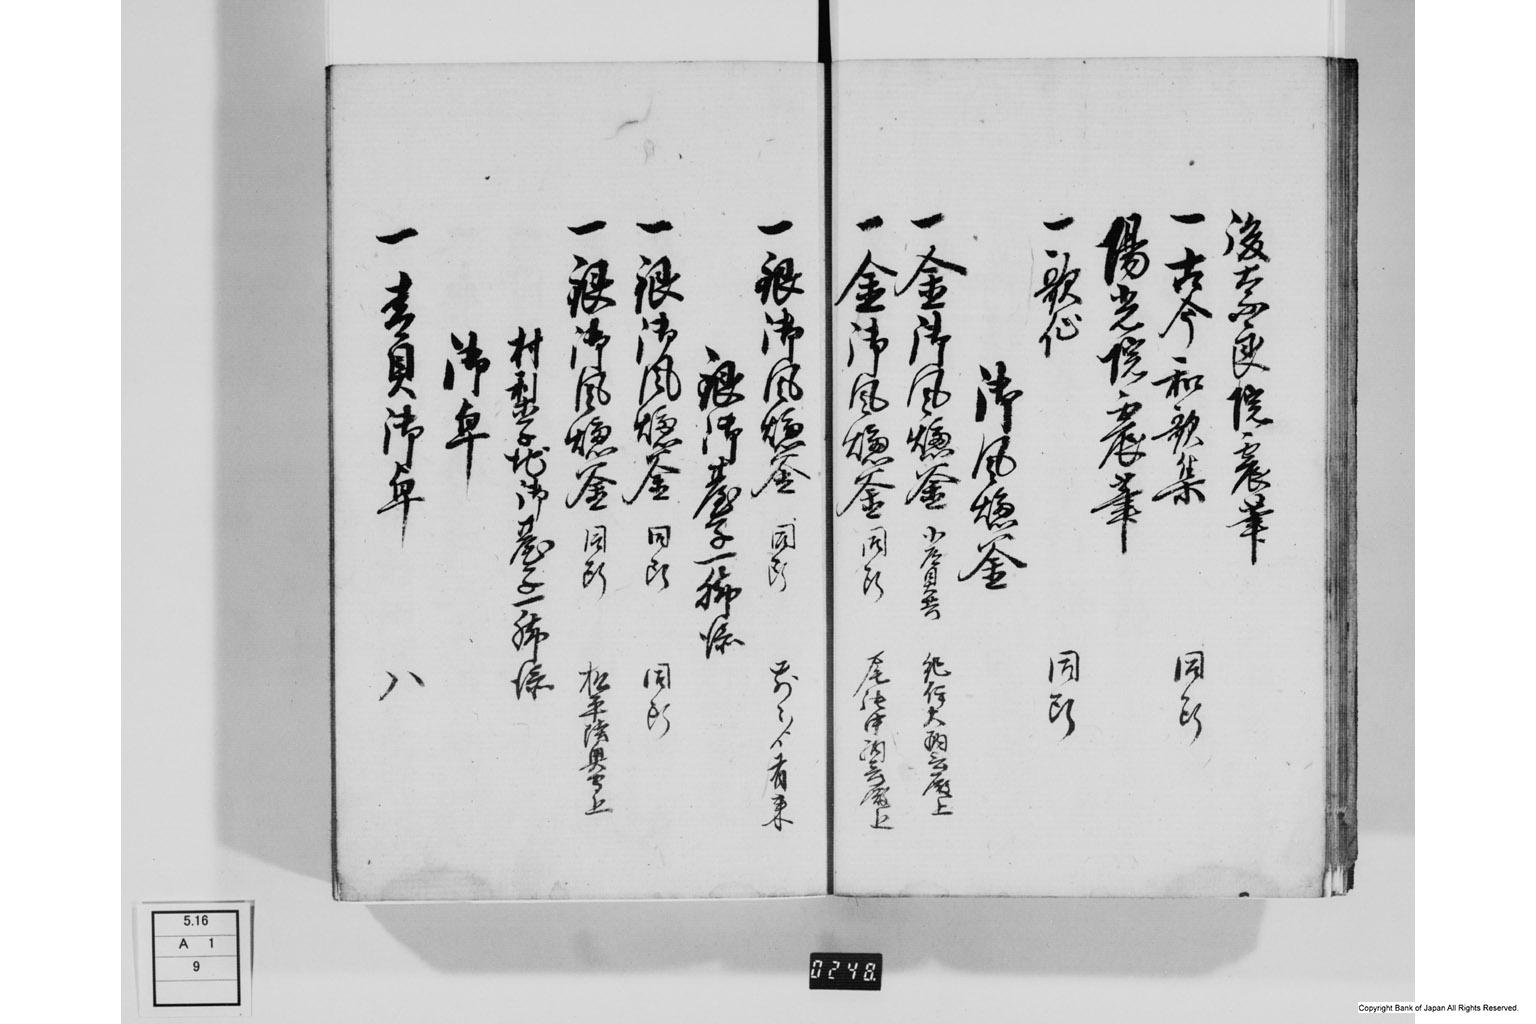 後奈良院宸筆
一古今和歌集　同断
陽光院宸筆
一歌仙　同断
御風爐釜
一金御風爐釜　紀伊大納言殿上
一金御風爐釜　同断　尾張中納言殿上
一銀御風爐釜　同断　前々ゟ有来
銀御臺子一飾添
一銀御風爐釜　同断　同断
一銀御風爐釜　同断　松平陸奥守上
村梨子地御臺子一飾添
御卓
一青貝御卓　八
5.16
A 1
9
0248
Copyright Bank of Japan All Rights Reserved.